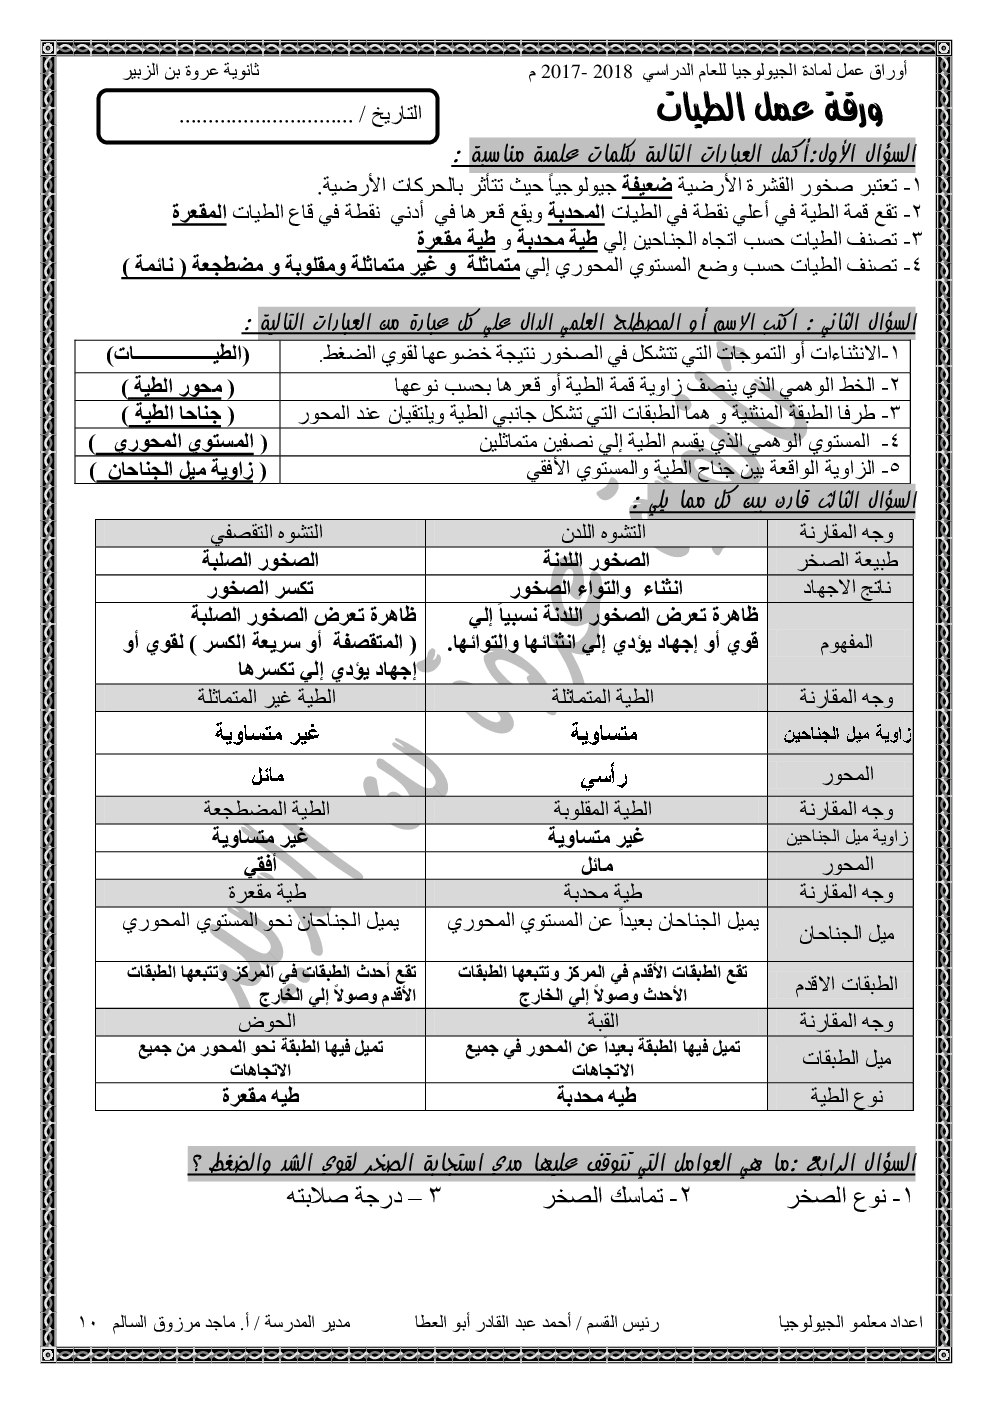 أوراق عمل لمادة الجيولوجيا للعام الدراسي 2018 -2017 م ثانوية عروة بن الزبير
ورقة عمل الطيات
التاريخ / ..............................
السؤال الأول:أكمل العبارات التالية بكلمات علمية مناسبة :
١- تعتبر صخور القشرة الأرضية ضعيفة جيولوجياً حيث تتأثر بالحركات الأرضية.
٢- تقع قمة الطية في أعلي نقطة في الطيات المحدبة ويقع قعرها في أدني نقطة في قاع الطيات المقعرة
٣- تصنف الطيات حسب اتجاه الجناحين إلي طية محدبة و طية مقعرة
٤- تصنف الطيات حسب وضع المستوي المحوري إلي متماثلة و غير متماثلة ومقلوبة و مضطجعة ( نائمة )
السؤال الثاني : اكتب الاسم أو المصطلح العلمي الدال علي كل عبارة من العبارات التالية :
١-الانثناءات أو التموجات التي تتشكل في الصخور نتيجة خضوعها لقوي الضغط. (الطيـــــــــــــات)
٢- الخط الوهمي الذي ينصف زاوية قمة الطية أو قعرها بحسب نوعها ( محور الطية )
٣- طرفا الطبقة المنثنية و هما الطبقات التي تشكل جانبي الطية ويلتقيان عند المحور ( جناحا الطية )
٤- المستوي الوهمي الذي يقسم الطية إلي نصفين متماثلين ( المستوي المحوري )
٥- الزاوية الواقعة بين جناح الطية والمستوي الأفقي ( زاوية ميل الجناحان )
السؤال الثالث قارن بين كل مما يلي :
وجه المقارنة التشوه اللدن التشوه التقصفي
طبيعة الصخر الصخور اللدنة الصخور الصلبة
ناتج الاجهاد انثناء والتواء الصخور تكسر الصخور
المفهوم ظاهرة تعرض الصخور اللدنة نسبياً إلي ظاهرة تعرض الصخور الصلبة
قوي أو إجهاد يؤدي إلي انثنائها والتوائها. ( المتقصفة أو سريعة الكسر ) لقوي أو
إجهاد يؤدي إلي تكسرها
وجه المقارنة الطية المتماثلة الطية غير المتماثلة
زاوية ميل الجناحين متساوية غير متساوية
المحور رأسي مائل
وجه المقارنة الطية المقلوبة الطية المضطجعة
زاوية ميل الجناحين غير متساوية غير متساوية
المحور مائل أفقي
وجه المقارنة طية محدبة طية مقعرة
ميل الجناحان يميل الجناحان بعيداً عن المستوي المحوري يميل الجناحان نحو المستوي المحوري
الطبقات الاقدم تقع الطبقات الأقدم في المركز وتتبعها الطبقات تقع أحدث الطبقات في المركز وتتبعها الطبقات
الأحدث وصولاً إلي الخارج الأقدم وصولاً إلي الخارج
وجه المقارنة القبة الحوض
ميل الطبقات تميل فيها الطبقة بعيداً عن المحور في جميع تميل فيها الطبقة نحو المحور من جميع
الاتجاهات الاتجاهات
نوع الطية طيه محدبة طيه مقعرة
السؤال الرابع :ما هي العوامل التي تتوقف عليها مدى استجابة الصخر لقوى الشد والضغط ؟
١- نوع الصخر ٢- تماسك الصخر ٣ – درجة صلابته
اعداد معلمو الجيولوجيا رئيس القسم / أحمد عبد القادر أبو العطا مدير المدرسة / أ. ماجد مرزوق السالم ١٠
ثانوية عروة بن الزبير